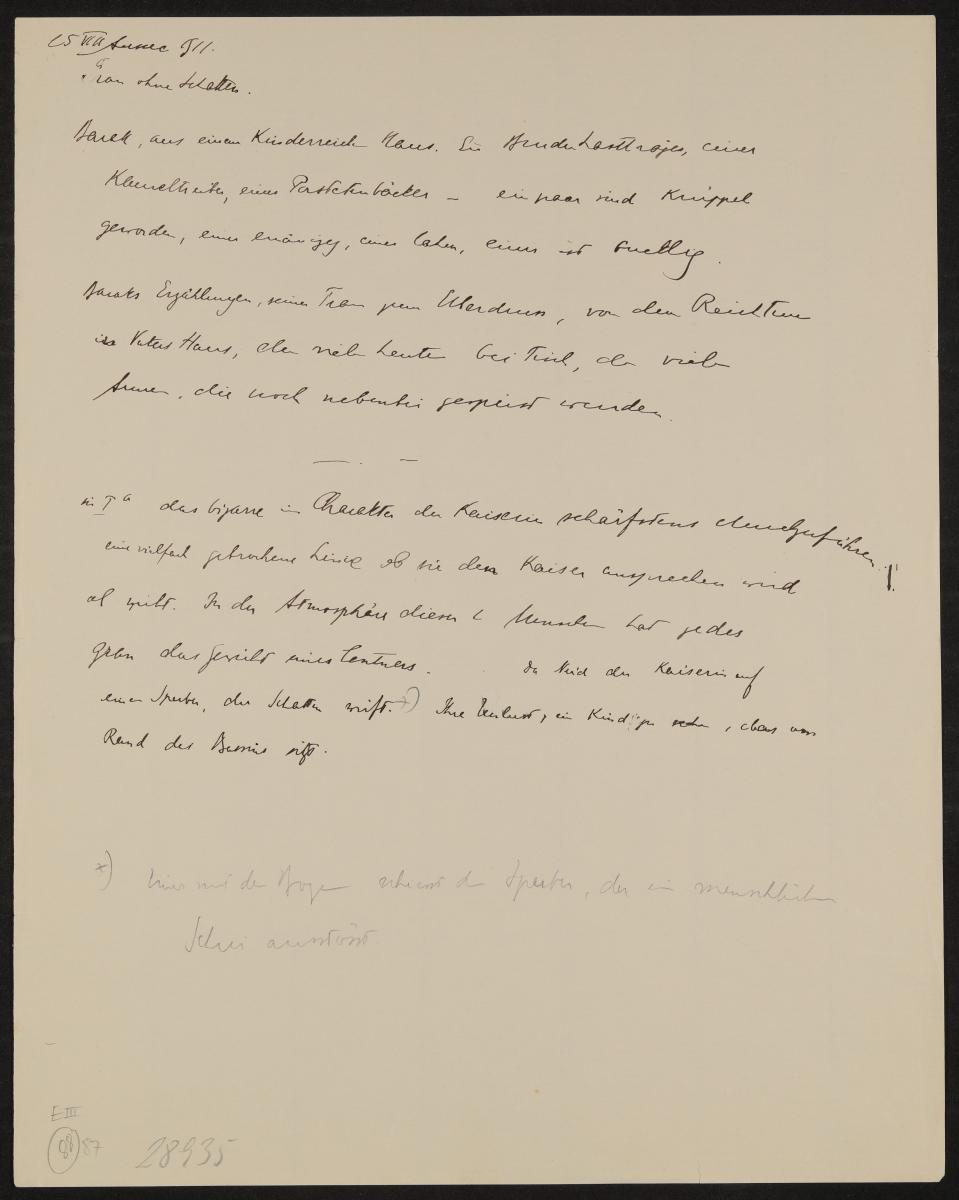 25 VIII Aussee 911.
Frau ohne Schatten.
Barak, aus einem Kinderreichen Haus. Ein Bruder Lastträger, einer
Kameeltreiber, einer Pastetenbäcker – ein paar sind Krüppel
geworden, einer einäugig, einer lahm, einer ist bucklig.
Baraks Erzählungen, seiner Frau zum Überdruss, von dem Reichtum
in Vaters Haus, den vielen Leuten bei Tisch, den vielen
Armen, die noch nebenbei gespeist wurden.
— . —
in I a das bizarre im Charakter der Kaiserin schärfstens durchzuführen!
eine vielfach gebrochene Linie ob sie den Kaiser ansprechen wird
ob nicht. In der Atmosphäre dieser 2 Menschen hat jedes
Gran das Gewicht eines Centners. Der Neid der Kaiserin auf
einen Sperber, der Schatten wirft. *) Ihre Unlust, ein Kind zu sehen, das am
Rand des Bassins sitzt.
*) mit dem Bogen schiesst den Sperber, der einen menschlichen
Schrei ausstösst.
E III
88 87
28935